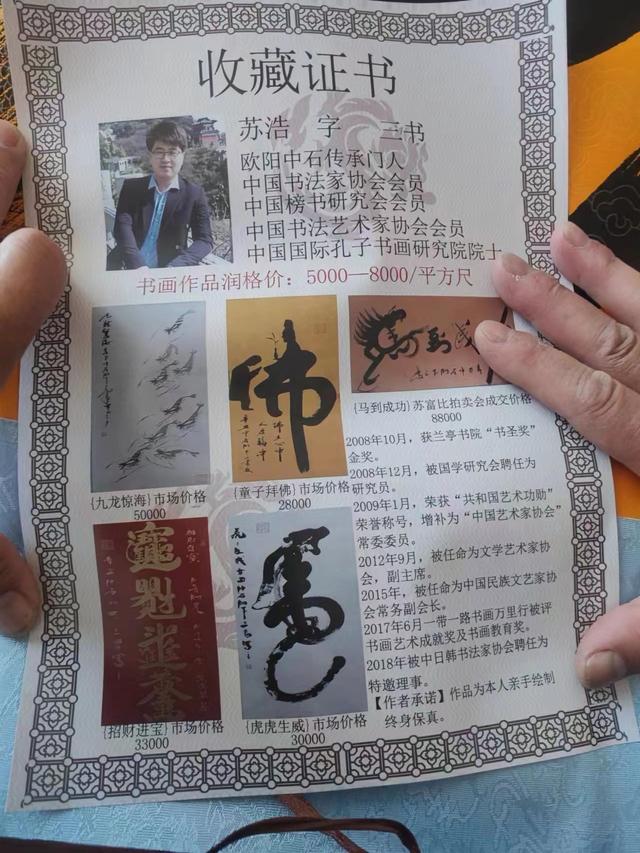 收藏证书
苏浩 字 三书
欧阳中石传承门人
中国书法家协会会员
中国榜书研究会会员
中国书法艺术家协会会员
中国国际孔子书画研究院院士
书画作品润格价：5000—8000/平方尺
{九龙惊海}市场价格
50000
{童子拜佛}市场价格
28000
{马到成功}苏富比拍卖会成交价格
88000
{招财进宝}市场价格
33000
{虎虎生威}市场价格
30000
2008年10月，获兰亭书院“书圣奖”
金奖。
2008年12月，被国学研究会聘任为
研究员。
2009年1月，荣获“共和国艺术功勋”
荣誉称号，增补为“中国艺术家协会”
常委委员。
2012年9月，被任命为文学艺术家协
会，副主席。
2015年，被任命为中国民族文艺家协
会常务副会长。
2017年6月一带一路书画万里行被评
书画艺术成就奖及书画教育奖。
2018年被中日韩书法家协会聘任为
特邀理事。
【作者承诺】作品为本人亲手绘制
终身保真。
佛